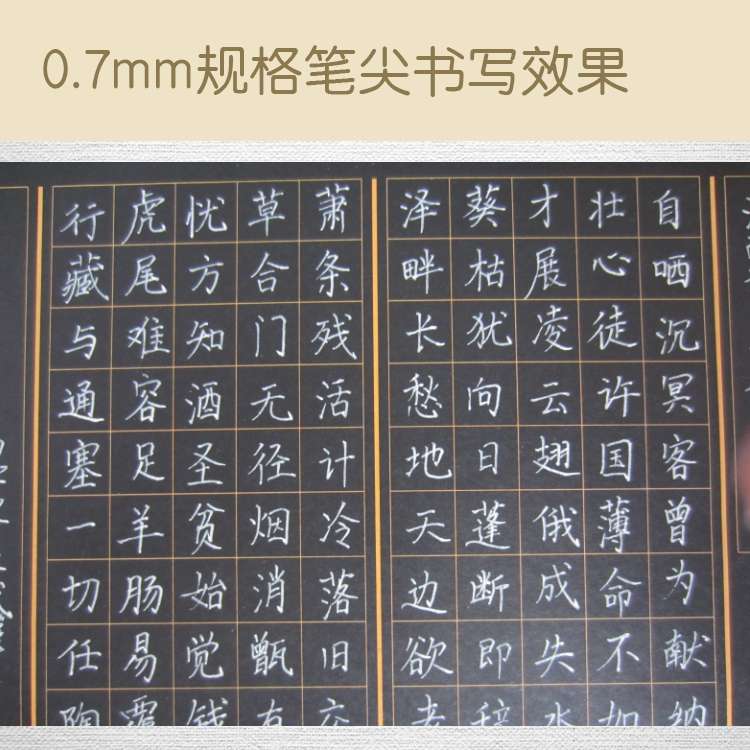 0.7mm规格笔尖书写效果
自哂沉冥客曾为献纳
壮心徒许国薄命不如
才展凌云翅俄成失水
葵枯犹向日蓬断即辞
泽畔长愁地天边欲老
萧条残活计冷落旧交
草合门无径烟消甑有
忧方知酒圣贫始觉钱
虎尾难容足羊肠易覆
行藏与通塞一切任陶